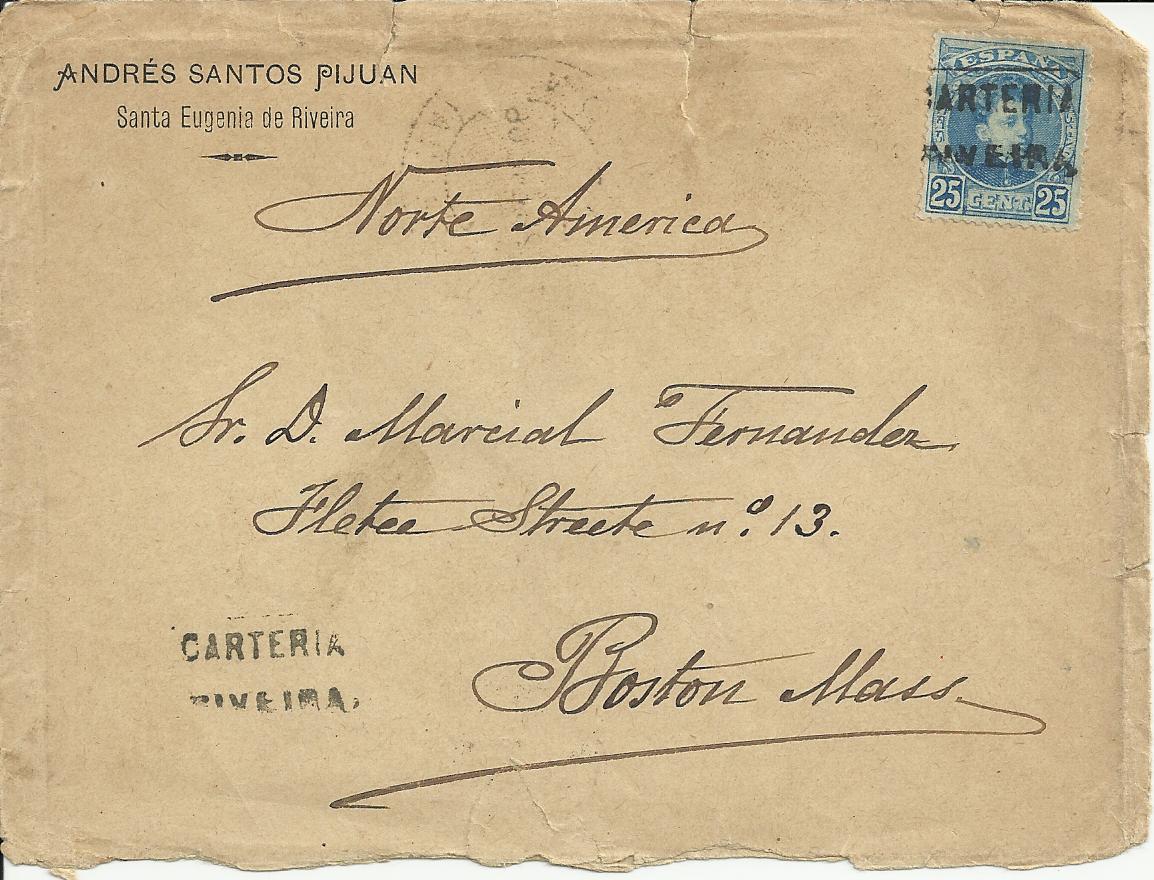 ANDRÉS SANTOS PIJUAN
Santa Eugenia de Riveira
ESPAÑA
CARTERIA
RIVEIRA
25 CENT. 25
Norte America
Sr. D. Marcial Fernandez
Fletee Streete nº. 13.
CARTERIA
RIVEIRA.
Boston Mass.